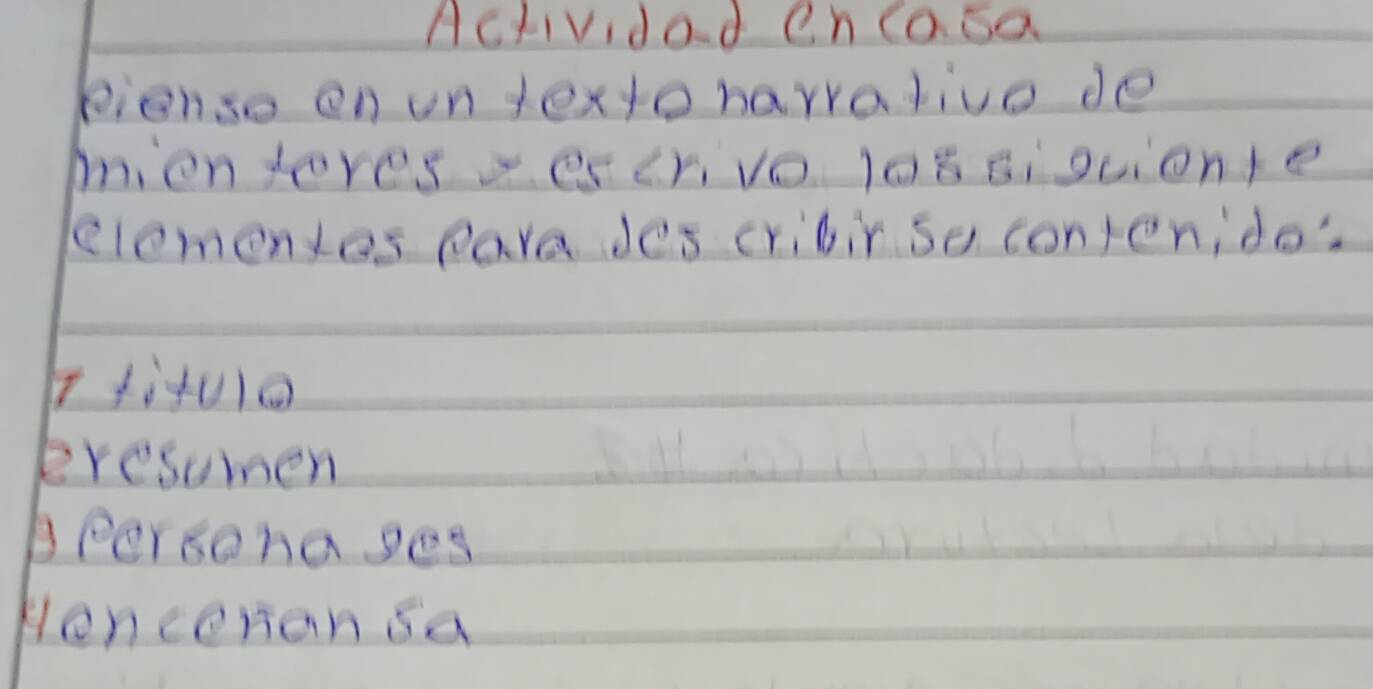 Actividad en casa
pienso en un texto narrativo de
mien teres y escrivo los siguiente
elementos para des cribir su contenido:
1 titulo
2 resumen
3 Persona ges
4 encerian sa